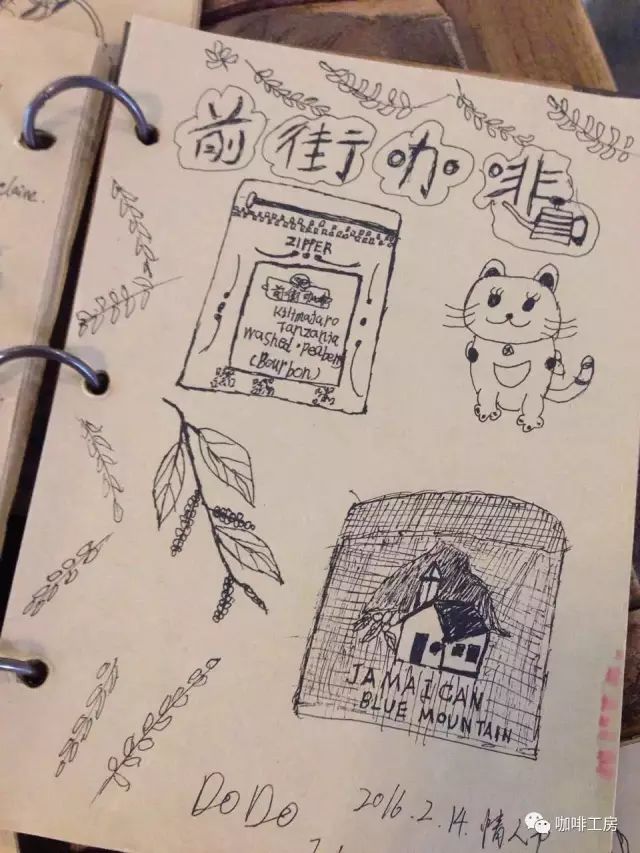 elaine.
前街咖啡
ZIPPER
前街咖啡
Kilimajaro
Tanzania
washed·Peaberry
(Bourbon)
JAMAICAN
BLUE MOUNTAIN
DoDo 2016.2.14.情人
咖啡工房